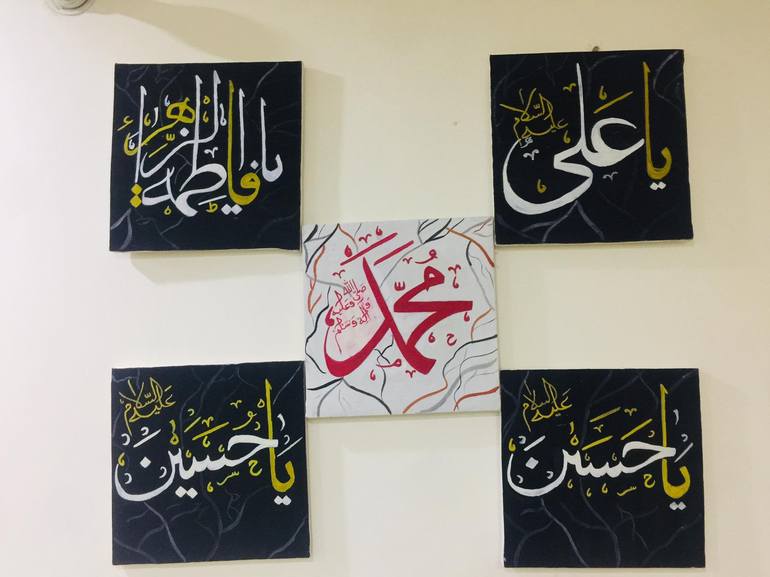 يا علي
عليه السلام
يا فاطمة الزهراء
مُحَمَّد
صلى الله
عليه
وآله وسلم
يا حَسَن
عليه السلام
يا حُسَين
عليه السلام